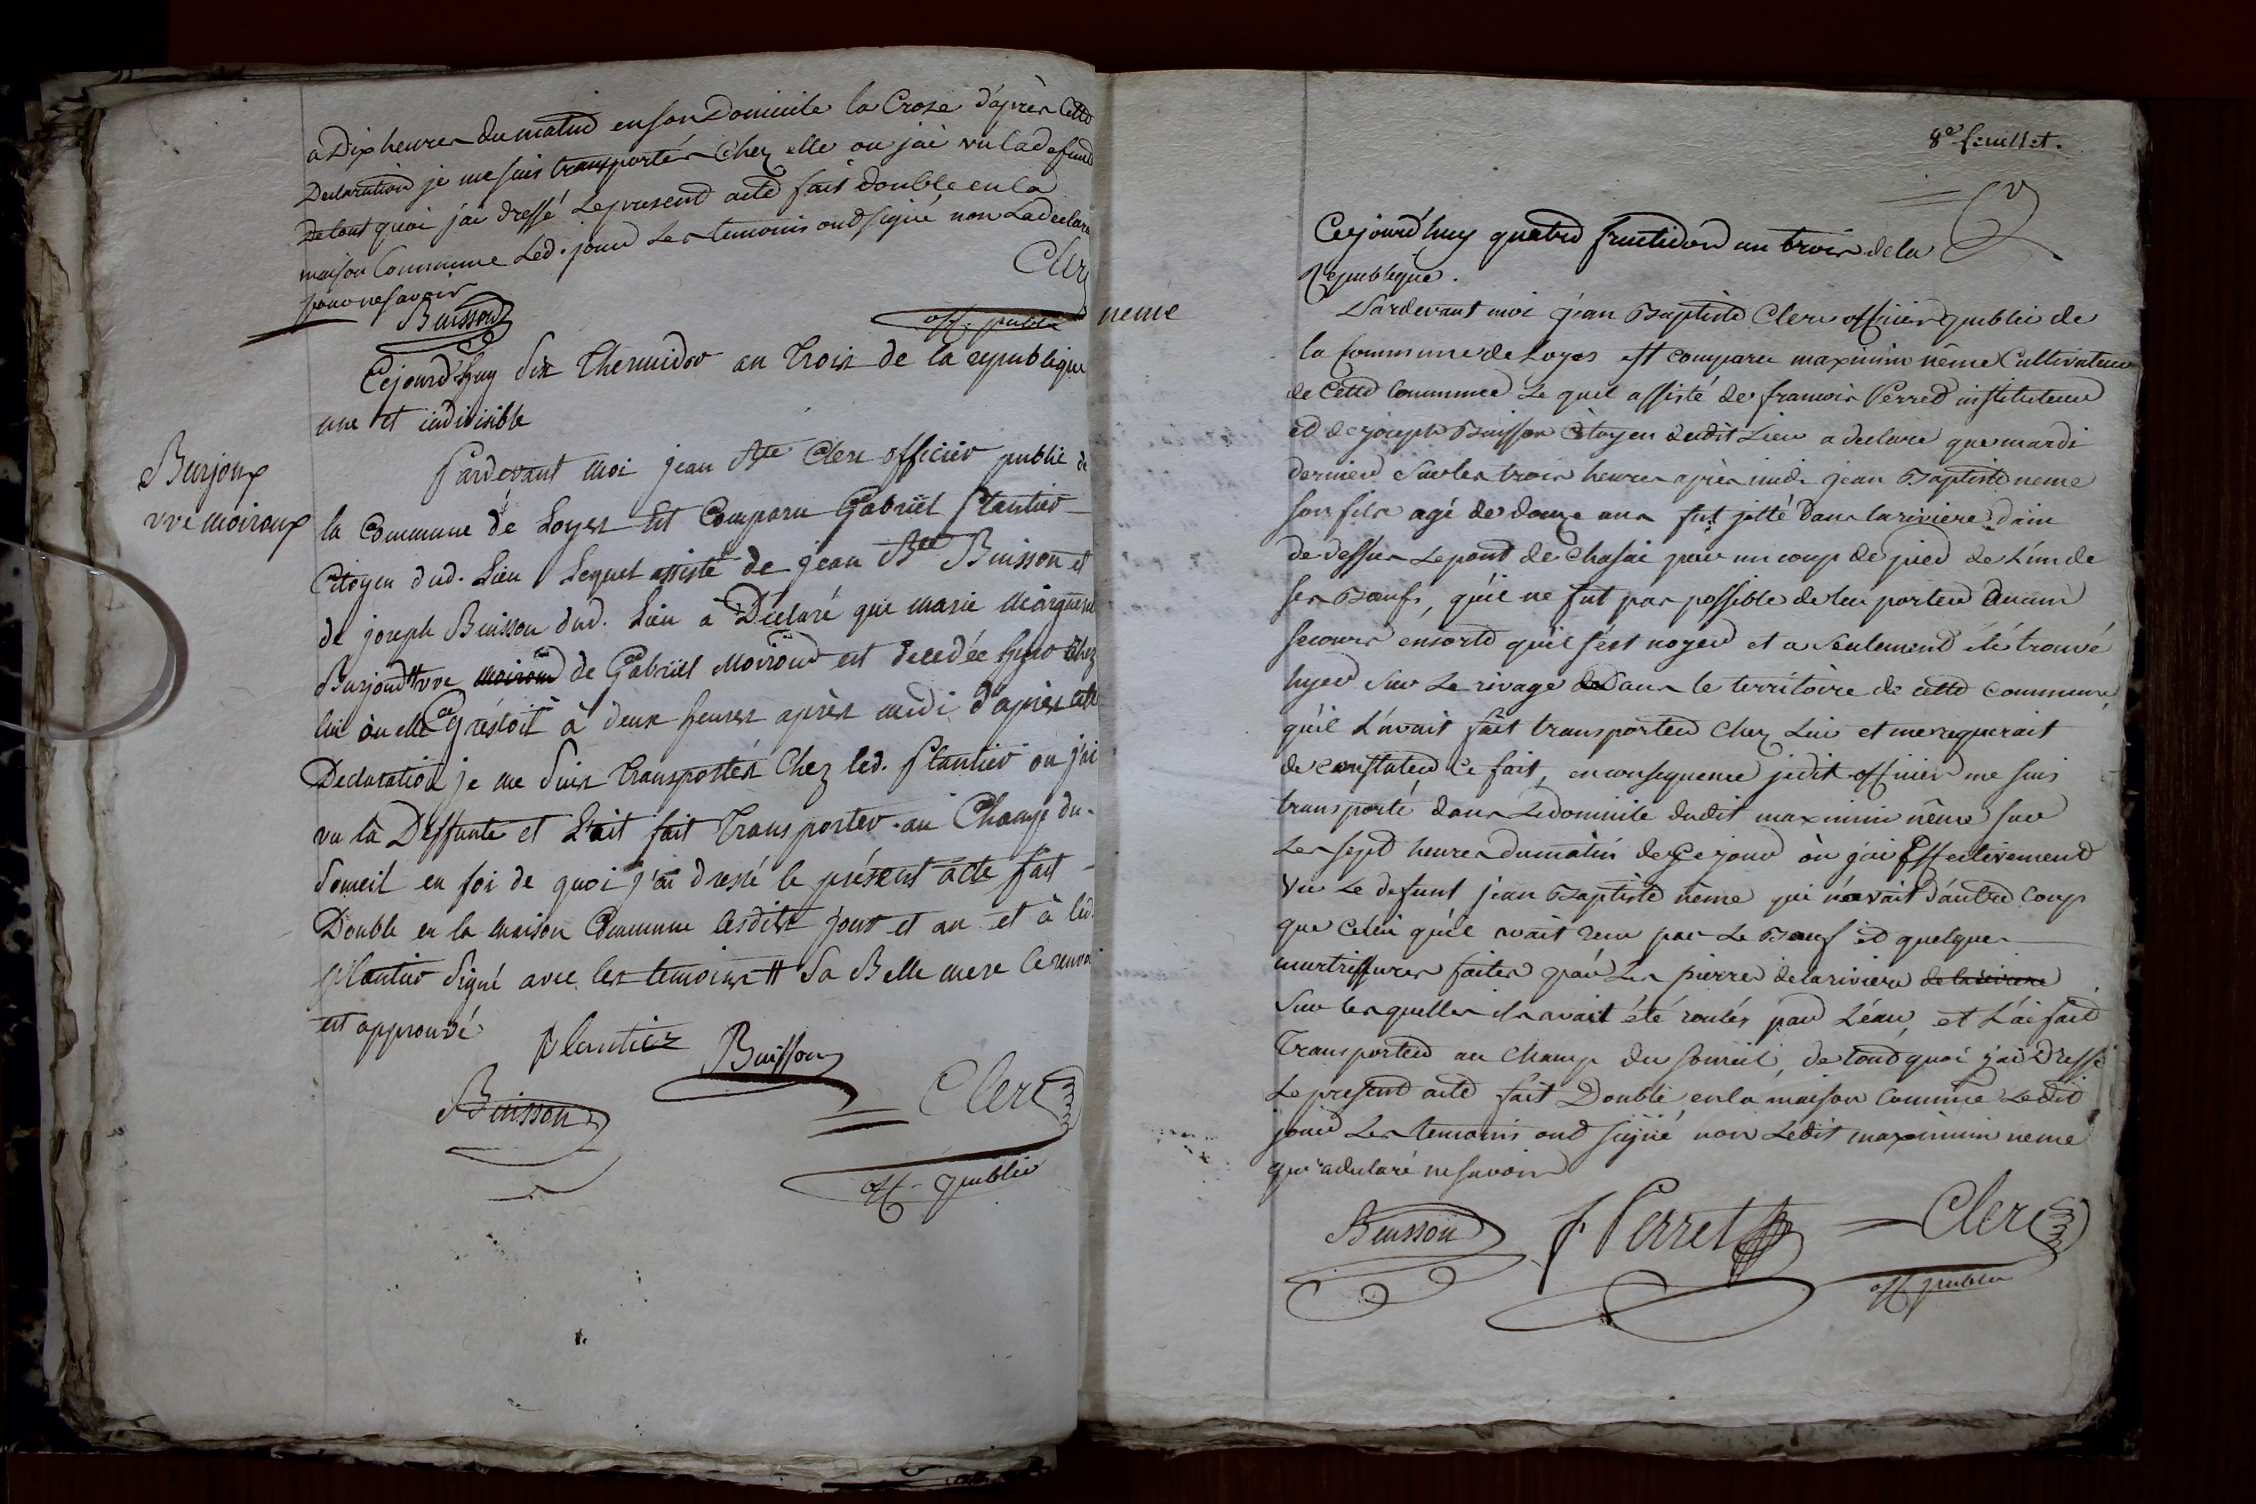 a Dix heures du matin en son Domicile la Croze d'après cette
Declaration je me suis transportés Chez elle ou j'ai vû la defund
De tout quoi j'ai dressé Le present acte fait double en la
maison Commune Led. jour Les temoins ont signé non La declara
pour ne savoir
Buisson
Clerc
off. public
Cejourd'huy Six Thermidor an Trois de la republique
une et indivisible
Burjoux
vve moiroux
Pardevant Moi jean Bte Clerc officier public de
la Commune de Loyes Est Comparu Gabriel Plantier
Citoyen dud. Lieu Lequel assisté de jean Bte Buisson et
de joseph Buisson dud. Lieu a Déclaré que marie marguerit
Burjoud # vve moiroud de Gabriel Moiroud est decedée hyer Chez
lui ou elle restoit à deux heures après midi d'après cete
Declaration je me Suis Transportés Chez led. Plantier ou j'ai
vu la Deffunte et L'ait fait Transporter au Champ du
Someil en foi de quoi j'ai dressé le présent acte fait
Double en la maison Commune lesdits jour et an et à led.
Plantier Signé avec les temoins # Sa Belle mere le renvoi
est approuvé
Plantier
Buisson
Buisson
Clerc
off. public
8e feuillet.
Cejourd'huy quatre fructidor an trois de la
Republique.
neme
Pardevant moi jean Baptiste Clerc officier public de
la Commune de Loyes est comparu maximin nême Cultivateur
de Cette Commune Le quel assisté de francois Perret instituteur
et de joseph Buisson Citoyen dudit Lieu a declaré que mardi
dernier Sur les trois heures après midi jean Baptiste neme
son fils agé de douze ans fut jetté Dans la riviere d'ain
de dessus Le pont de Chasai par un coup de pied de L'un de
ses Bœufs, qu'il ne fut pas possible de lui porter Aucun
secours ensorte qu'il s'est noyer et a Seulement été trouvé
hyer Sur Le rivage Dans le territoire de cette Commune,
qu'il L'avait fait transporter Chez Lui et me requerait
de constater Ce fait, en consequence jedit officier me suis
transporté dans Le domicile dudit maximin nême sur
Les sept heures du matin de Ce jour où j'ai Effectivement
Vu Le defunt jean Baptiste nême qui n'avait d'autre Coup
que Celui qu'il avait recu par Le Bœuf et quelques
murtrissures faites par Les pierre de la riviere de la riviere
Sur lesquelles il avait été roulés par L'éau, et L'ai fait
Transporter au Champ du Someil, de tout quoi j'ai Dressé
Le present acte fait Double en la maison Comme Ledit
jour Les temoins ont signé non Ledit maximin neme
qui a declaré ne savoir
Buisson
f Perret
Clerc
off public